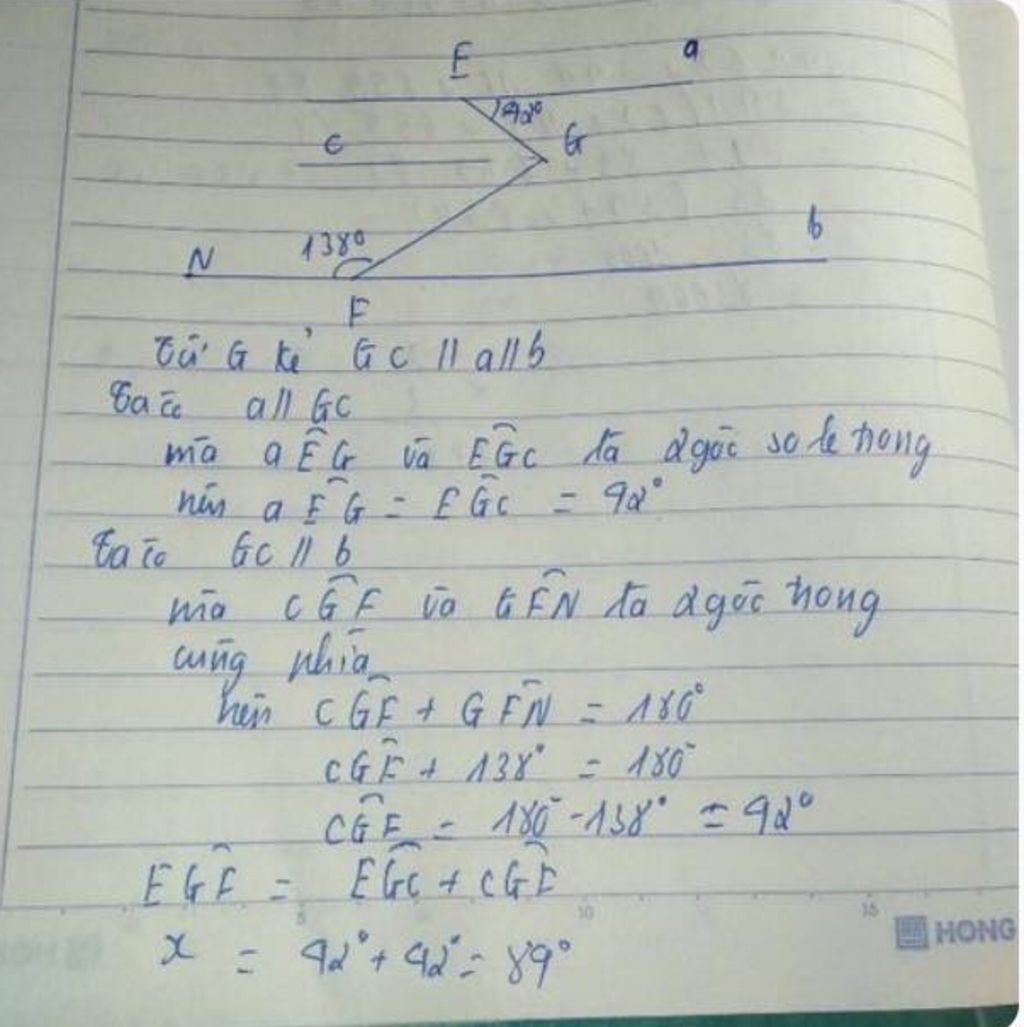 E
a
42°
c
G
138°
b
N
F
Từ G kẻ Gc // a // b
Ta có a // Gc
mà aÊG và EĜc là 2 góc so le trong
nên aÊG = EĜc = 42°
Ta có Gc // b
mà cĜF và GF̂N là 2 góc trong
cùng phía
nên cĜF + GF̂N = 180°
cĜF + 138° = 180°
cĜF = 180° - 138° = 42°
EĜF = EĜc + cĜF
x = 42° + 42° = 84°
5 10 15
HONG